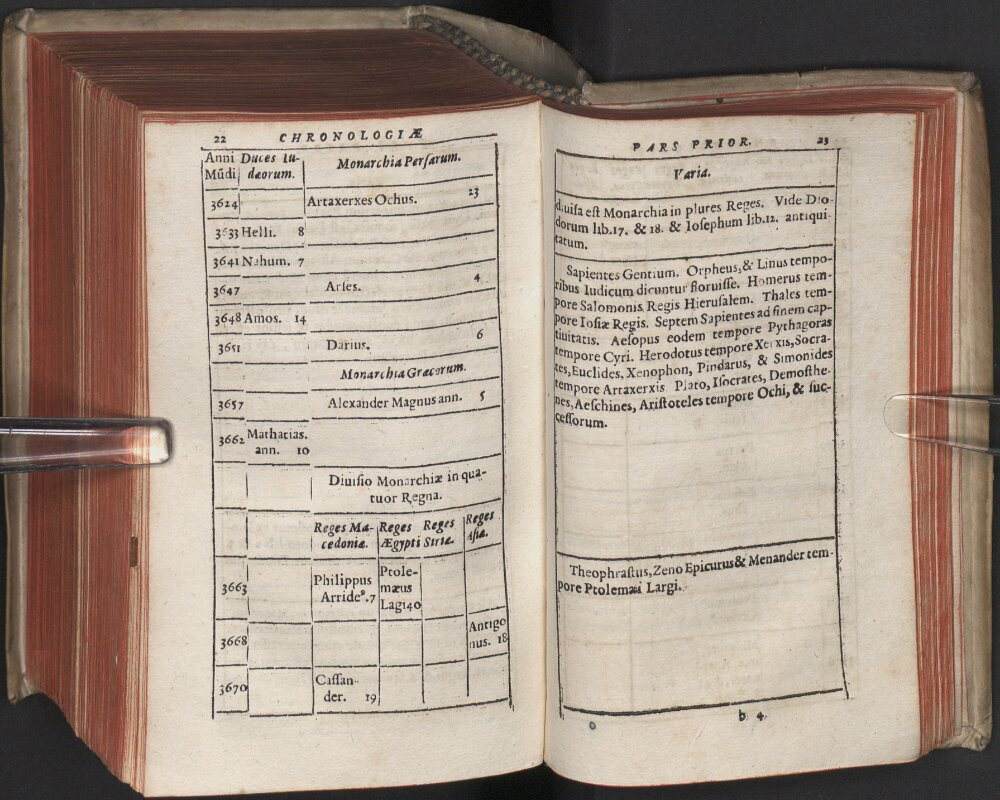 22 CHRONOLOGIÆ
Anni Duces Iu- Monarchia Persarum.
Mũdi dæorum.
3624 Artaxerxes Ochus. 23
3633 Helli. 8
3641 Nahum. 7
3647 Arses. 4
3648 Amos. 14
3651 Darius. 6
Monarchia Græcorum.
3657 Alexander Magnus ann. 5
3662 Mathatias.
ann. 10
Diuisio Monarchiæ in qua-
tuor Regna.
Reges Ma- Reges Reges Reges
cedoniæ. Ægypti Siriæ. Asiæ.
3663 Philippus Ptole-
Arride⁹.7 mæus
Lagi40
3668 Antigo
nus. 18
3670 Cassan-
der. 19
PARS PRIOR. 23
Varia.
diuisa est Monarchia in plures Reges. Vide Dio-
dorum lib.17. & 18. & Iosephum lib.12. antiqui-
tatum.
Sapientes Gentium. Orpheus,& Linus tempo-
ribus Iudicum dicuntur floruisse. Homerus tem-
pore Salomonis Regis Hierusalem. Thales tem-
pore Iosiæ Regis. Septem Sapientes ad finem cap-
tiuitatis. Aesopus eodem tempore Pythagoras
tempore Cyri. Herodotus tempore Xerxis,Socra-
tes,Euclides, Xenophon, Pindarus, & Simonides
tempore Artaxerxis Plato, Isocrates, Demosthe-
nes,Aeschines, Aristoteles tempore Ochi, & suc-
cessorum.
Theophrastus,Zeno Epicurus& Menander tem-
pore Ptolemæi Largi.
b 4